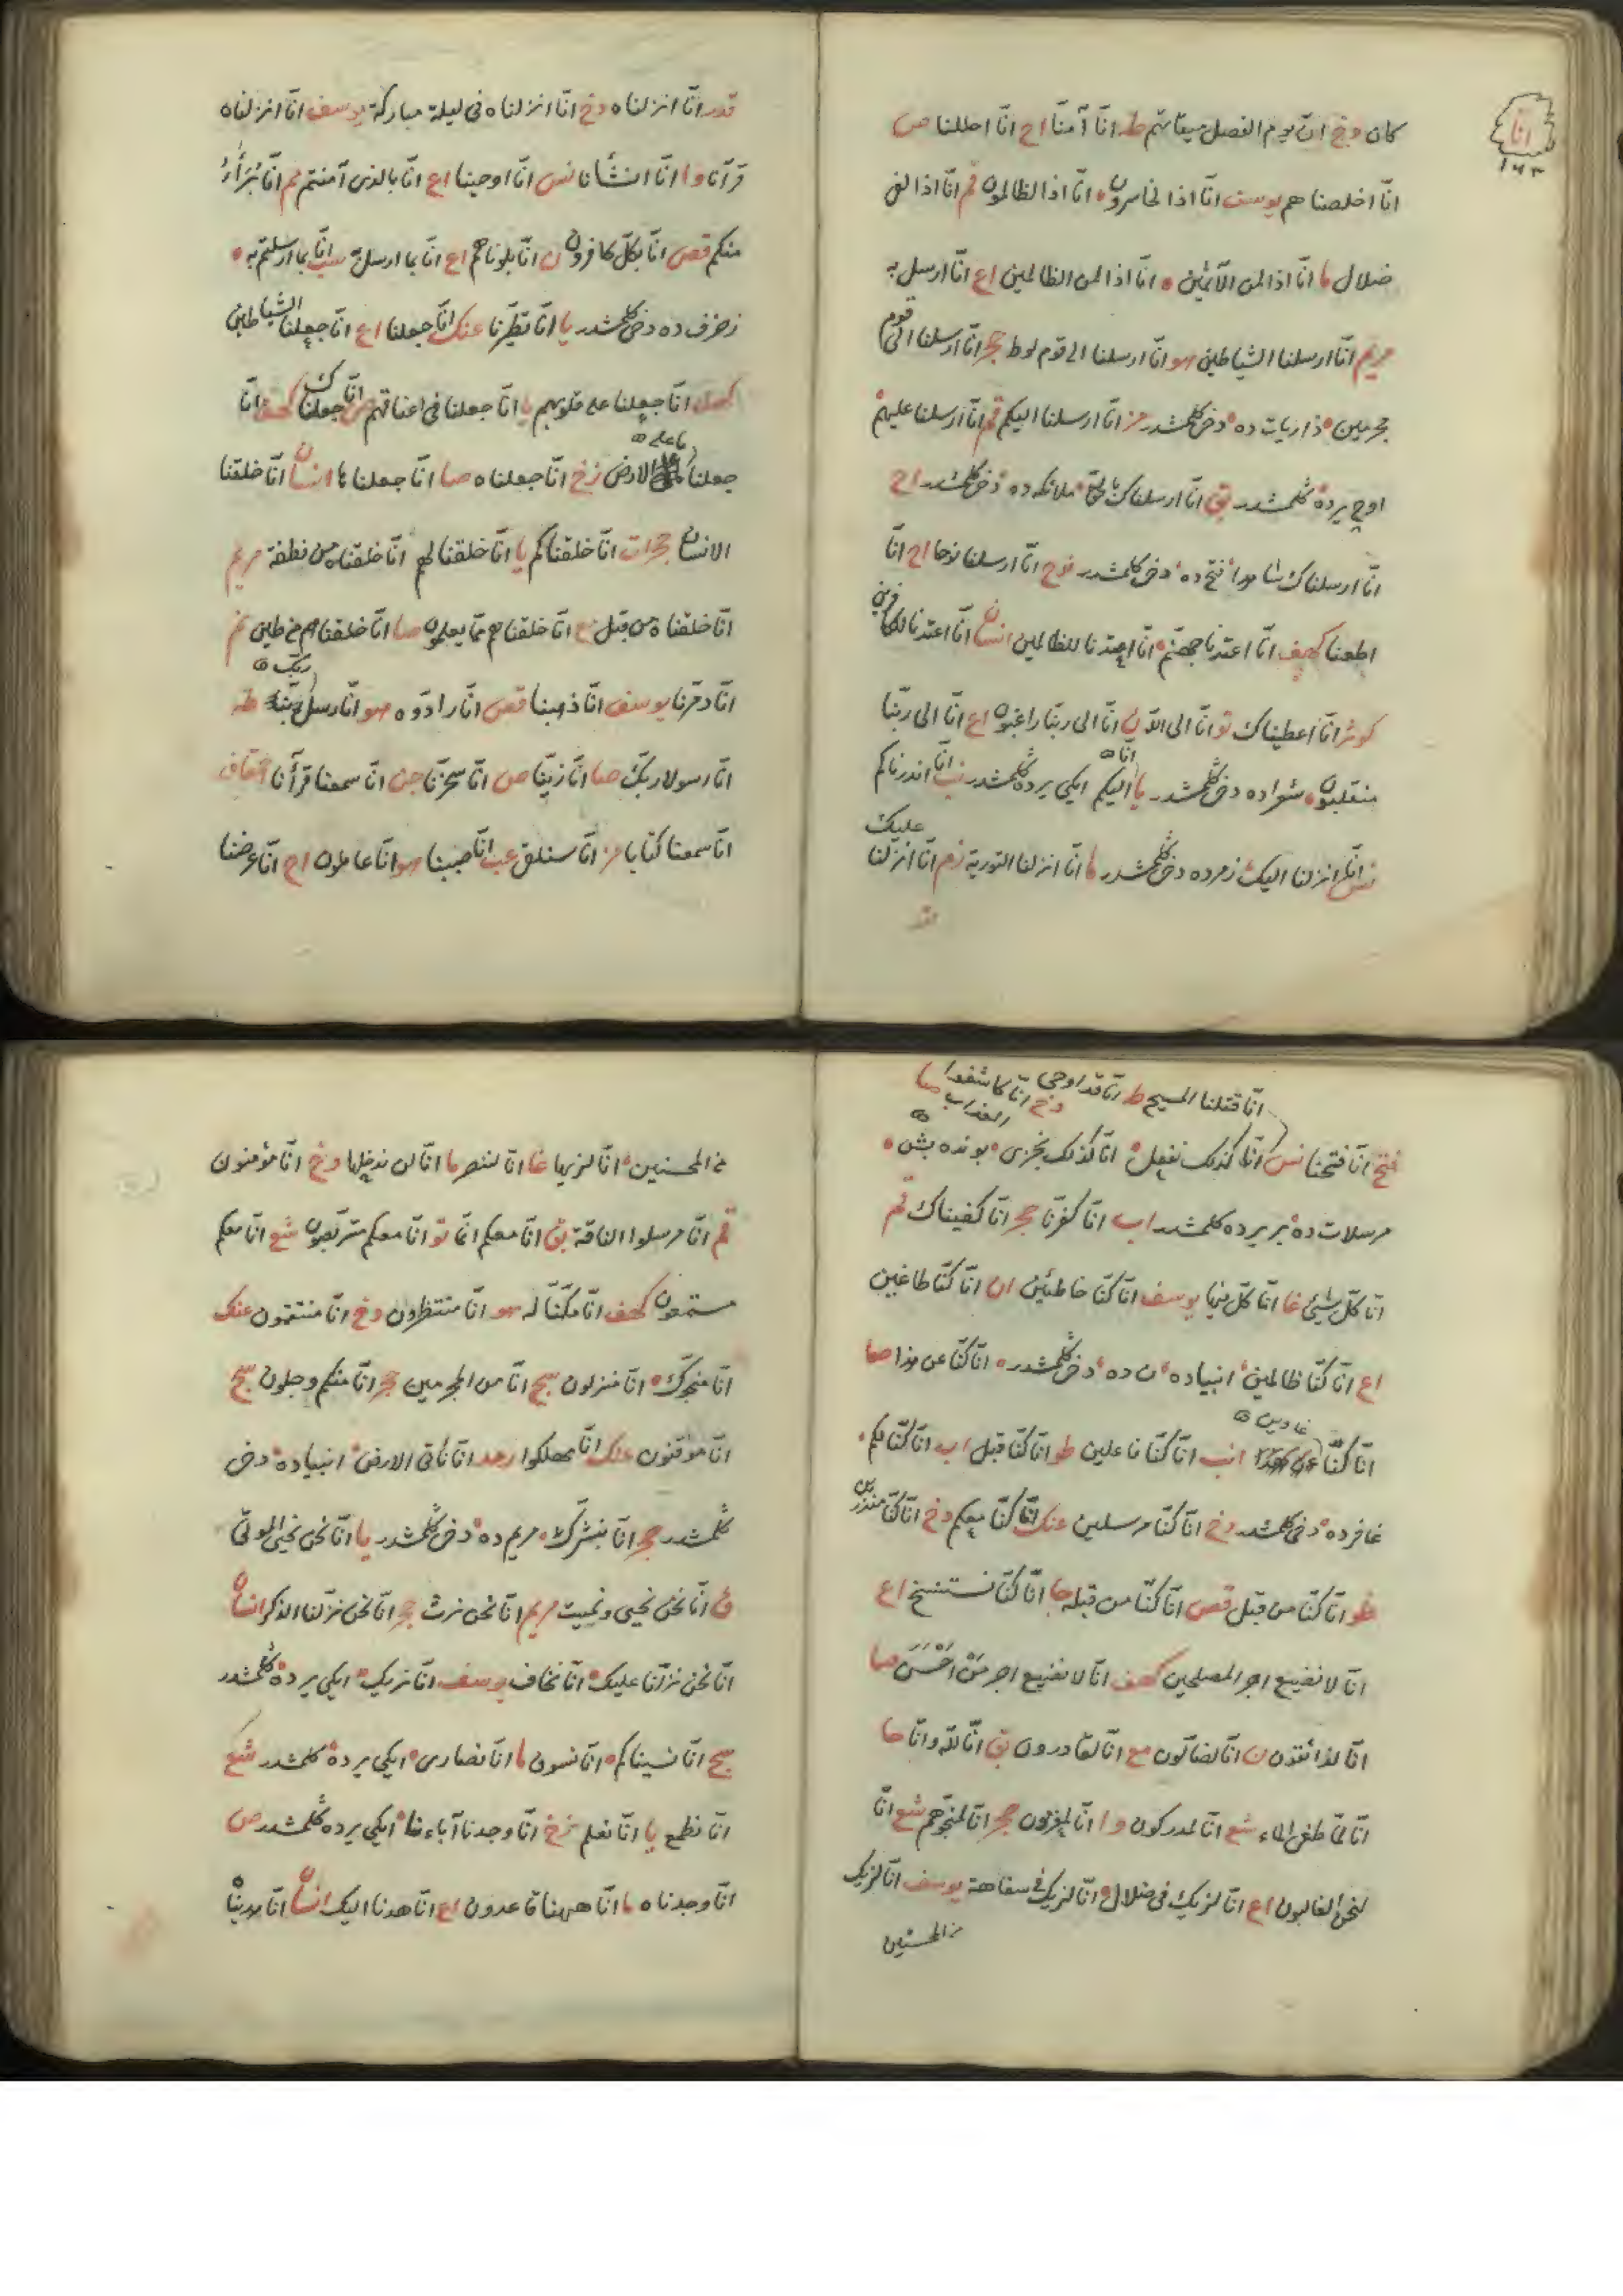 انّا
١٦٣
كان دخ انّ يوم الفصل ميقاتهم طه انّا آمنّا اح انّا احللنا ص
انّا اخلصناهم يوسف انّا اذا لخاسرون انّا اذا لظالمون قم انّا اذا لفى
ضلال ما انّا اذا لمن الآثمين انّا اذا لمن الظالمين اع انّا ارسل به
مريم انّا ارسلنا الشياطين هو انّا ارسلنا الى قوم لوط حجر انّا ارسلنا الى قوم
مجرمين ذاريات ده دخى كلمشدر مز انّا ارسلنا اليكم قم انّا ارسلنا عليهم
اوچ يرده كلمشدر بق انّا ارسلناك بالحق ملائكه ده دخى كلمشدر اح
انّا ارسلناك شاهدا فتح ده دخى كلمشدر نوح انّا ارسلنا نوحا اح انّا
اطعنا كهف انّا اعتدنا جهنم انّا اعتدنا للظالمين انسان انّا اعتدنا للكافرين
كوثر انّا اعطيناك تو انّا الى الله ن انّا الى ربّنا راغبون اع انّا الى ربّنا
منقلبون شعراده دخى كلمشدر يا انّا اليكم ايكى يرده كلمشدر نب انّا انذرناكم
نس انّا انزلنا اليك زمرده دخى كلمشدر ما انّا انزلنا التورية زمر انّا انزلنا عليك
قدر
قدر انّا انزلناه دخ انّا انزلناه فى ليلة مباركة يوسف انّا انزلناه
قرآنا وا انّا انشأنا نس انّا اوحينا اع انّا بالذى آمنتم مم انّا برآء
منكم قص انّا بكلّ كافرون ن انّا بلوناهم اع انّا بما ارسل سب انّا بما ارسلتم به
زخرف ده دخى كلمشدر يا انّا تطيّرنا عنك انّا جعلنا اع انّا جعلنا الشياطين
كهف انّا جعلنا على قلوبهم يا انّا جعلنا فى اعناقهم ص انّا جعلناك كهف انّا
جعلنا ما على الارض زخ انّا جعلناه صا انّا جعلناها انسان انّا خلقنا
الانسان حجرات انّا خلقناكم يا انّا خلقنا لهم انّا خلقناه من نطفة مريم
انّا خلقناه من قبل مع انّا خلقناهم ممّا يعلمون صا انّا خلقناهم من طين نم
انّا دمّرنا يوسف انّا ذهبنا قص انّا رادّوه هو انّا رسل ربّك طه
انّا رسولا ربّك صا انّا زيّنا ص انّا سخّرنا جن انّا سمعنا قرآنا احقاف
انّا سمعنا كتابا مز انّا سنلقى عب انّا صببنا هو انّا عاملون اح انّا عرضنا
انّا قتلنا المسيح ط انّا قد اوحى
دخ انّا كاشفوا العذاب صا
فتح انّا فتحنا نس انّا كذلك نفعل انّا كذلك نجزى بونده بش
مرسلات ده بر يرده كلمشدر اب انّا كفرنا حجر انّا كفيناك قم
انّا كلّ شيئ غا انّا كلّ فيها يوسف انّا كنّا خاطئين ن انّا كنّا طاغين
اع انّا كنّا ظالمين انبياده ن ده دخى كلمشدر انّا كنّا عن هذا صا
انّا كنّا غاوين انب انّا كنّا فاعلين طو انّا كنّا قبل اب انّا كنّا لكم
غافرده دخى كلمشدر دخ انّا كنّا مرسلين عنك انّا كنّا معكم دخ انّا كنّا منذرين
طو انّا كنّا من قبل قص انّا كنّا من قبله جا انّا كنّا نستنسخ اع
انّا لا نضيع اجر المصلحين كهف انّا لا نضيع اجر من احسن صا
انّا لذائقون ن انّا لضالّون مع انّا لقادرون بق انّا لله وانّا حا
انّا لمّا طغى الماء شع انّا لمدركون وا انّا لمغرمون حجر انّا لمنجّوهم شع انّا
لنحن الغالبون اع انّا لنريك فى ضلال انّا لنريك فى سفاهة يوسف انّا لنريك
من المحسنين
من المحسنين انّا لنريها غا انّا لننصر ما انّا لن ندخلها دخ انّا مؤمنون
قم انّا مرسلوا الناقة بق انّا معكم انّما تو انّا معكم متربّصون شع انّا معكم
مستمعون كهف انّا مكّنّا له هو انّا منتظرون دخ انّا منتقمون عنك
انّا منجّوك انّا منزلون سج انّا من المجرمين حجر انّا منكم وجلون سج
انّا موقنون عنك انّا مهلكوا رعد انّا نأتى الارض انبياده دخى
كلمشدر حجر انّا نبشّرك مريم ده دخى كلمشدر يا انّا نحن نحيى الموتى
ق انّا نحن نحيى ونميت مريم انّا نحن نرث حجر انّا نحن نزّلنا الذكر انسان
انّا نحن نزّلنا عليك انّا نخاف يوسف انّا نريك ايكى يرده كلمشدر
سج انّا نسيناكم انّا نسون ما انّا نصارى ايكى يرده كلمشدر شع
انّا نطمع يا انّا نعلم زخ انّا وجدنا آباءنا ايكى يرده كلمشدر ص
انّا وجدناه ما انّا ههنا قاعدون اع انّا هدنا اليك انسان انّا هديناه